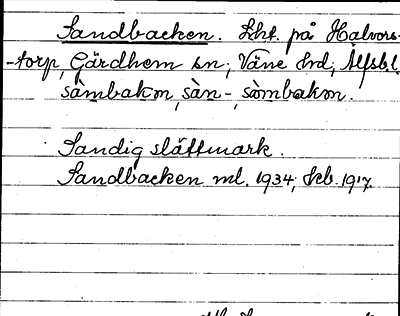 Sandbacken. Lht. på Halvors-
-torp, Gärdhem sn; Väne hrd; Älfsb.l.
sàmbakɷn, sàn-, sòmbakɷn.
Sandig slättmark.
Sandbacken ml. 1934; Skb. 1917.